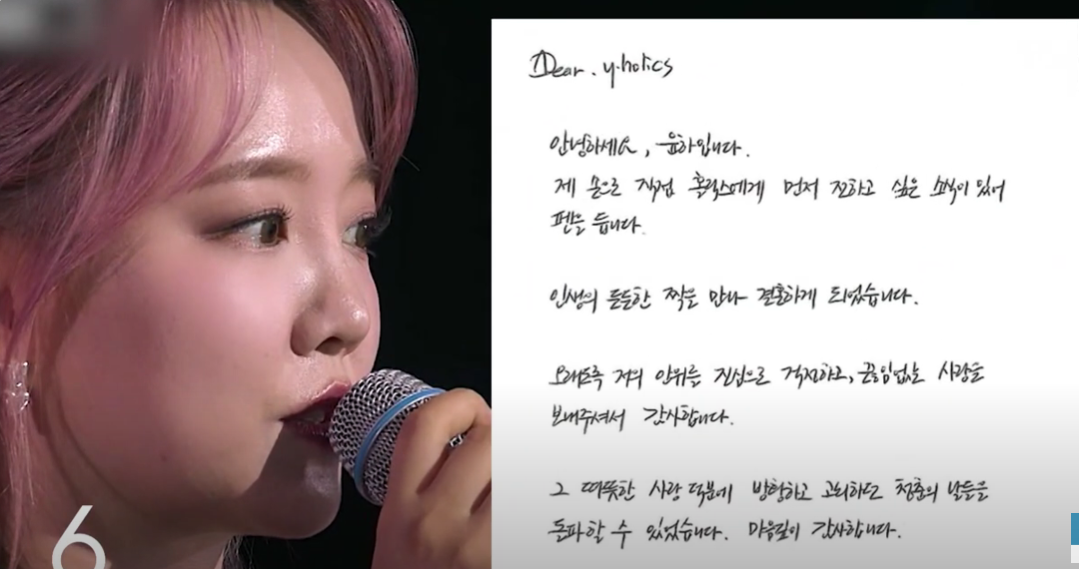 Dear. y.holics
안녕하세요, 윤하입니다.
제 손으로 직접 홀릭스에게 먼저 전하고 싶은 소식이 있어
펜을 듭니다.
인생의 든든한 짝을 만나 결혼하게 되었습니다.
오래도록 저의 안위를 진심으로 걱정하고, 끊임없는 사랑을
보내주셔서 감사합니다.
그 따뜻한 사랑 덕분에 방황하고 고뇌하던 청춘의 날들을
돌파할 수 있었습니다. 마음깊이 감사합니다.
6